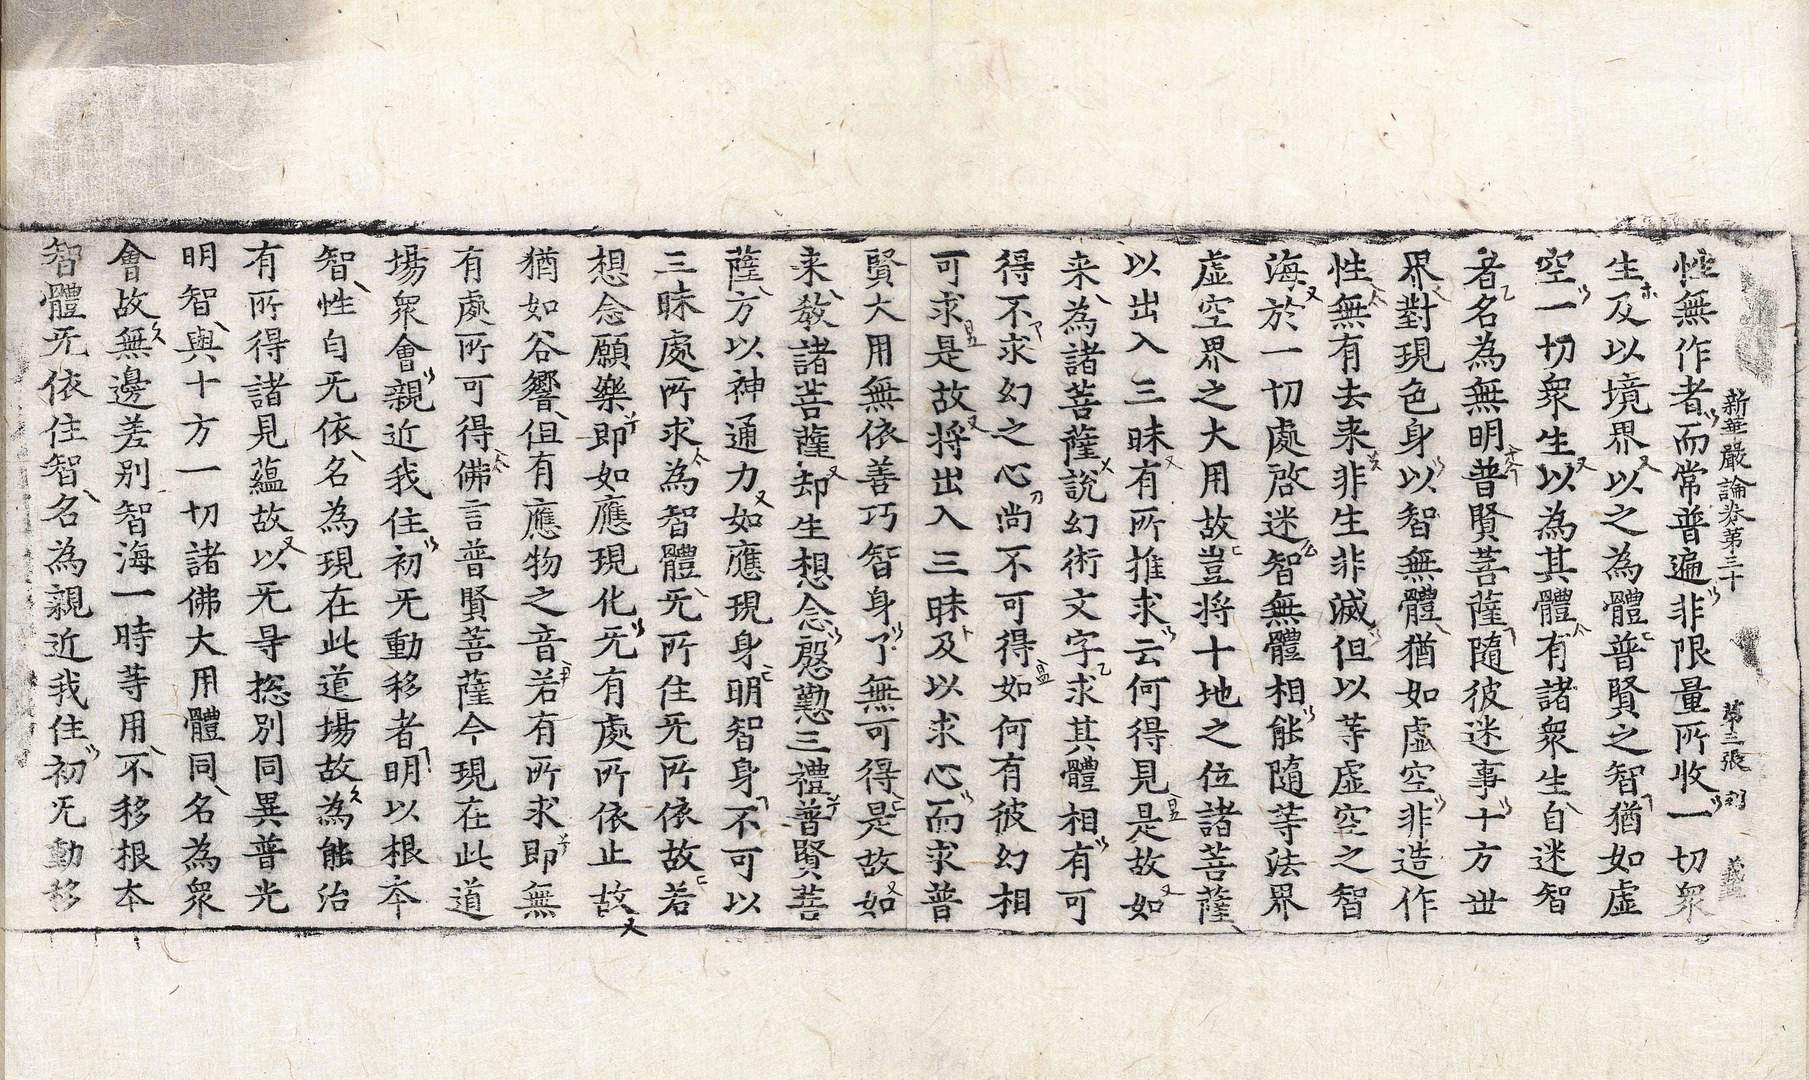 新華嚴論卷第三十 第三張
性無作者而常普遍非限量所收一切衆
生及以境界以之為體普賢之智猶如虛
空一切衆生以為其體有諸衆生自迷智
者名為無明普賢菩薩隨彼迷事十方世
界對現色身以智無體猶如虛空非造作
性無有去来非生非滅但以等虛空之智
海於一切處啓迷智無體相能隨等法界
虛空界之大用故豈將十地之位諸菩薩
以出入三昧有所推求云何得見是故如
来為諸菩薩說幻術文字求其體相有可
得不求幻之心尚不可得如何有彼幻相
可求是故将出入三昧及以求心而求普
賢大用無依善巧智身了無可得是故如
来教諸菩薩却生想念慇懃三禮普賢菩
薩方以神通力如應現身明智身不可以
三昧處所求為智體旡所住旡所依故若
想念願樂即如應現化旡有處所依止故
猶如谷響但有應物之音若有所求即無
有處所可得佛言普賢菩薩今現在此道
場衆會親近我住初旡動移者明以根本
智性自旡依名為現在此道場故為能治
有所得諸見蘊故以旡㝵揔別同異普光
明智與十方一切諸佛大用體同名為衆
會故無邊差别智海一時等用不移根本
智體旡依住智名為親近我住初旡動移